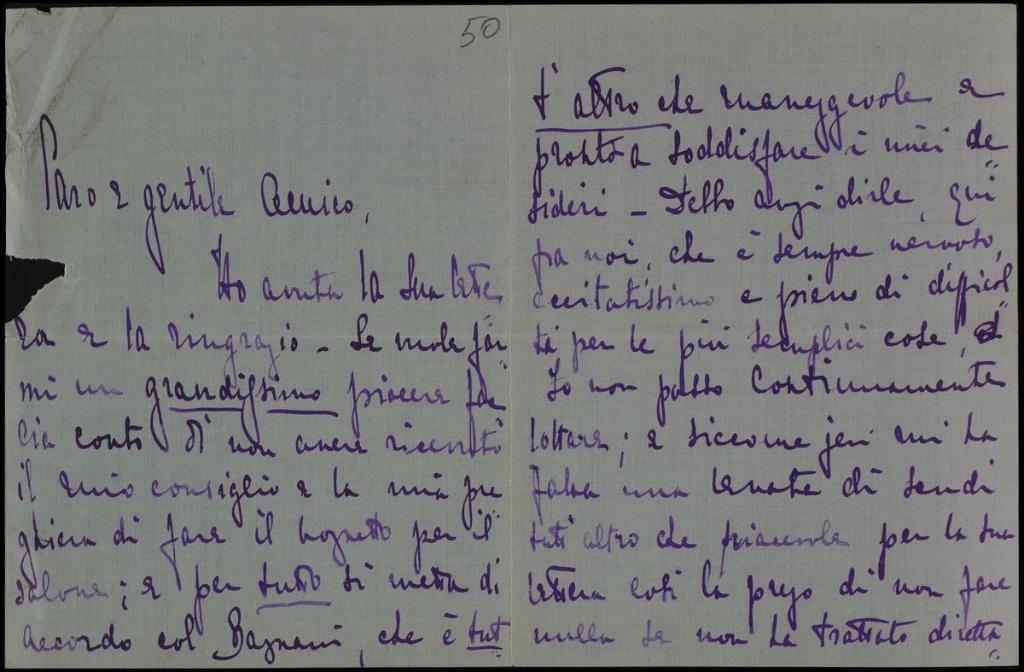 50
Caro e gentile Amico,
Ho avuta la sua lette
ra e la ringrazio – Se vuole far
mi un grandissimo piacere fac
cia conto di non avere ricevuto
il mio consiglio e la mia pre
ghiera di fare il bozzetto per il
salone; e per tutto si metta di
accordo col Bagnani, che è tut
t'altro che maneggevole e
pronto a soddisfare i miei de
sideri – Debbo anzi dirle, qui
fra noi, che è sempre nervoso,
eccitatissimo e pieno di difficol
tà per le più semplici cose,
Io non posso continuamente
lottare; e siccome jeri mi ha
fatta una levata di scudi
tutt'altro che piacevole per la sua
lettera così la prego di non fare
nulla se non ha trattato diretta